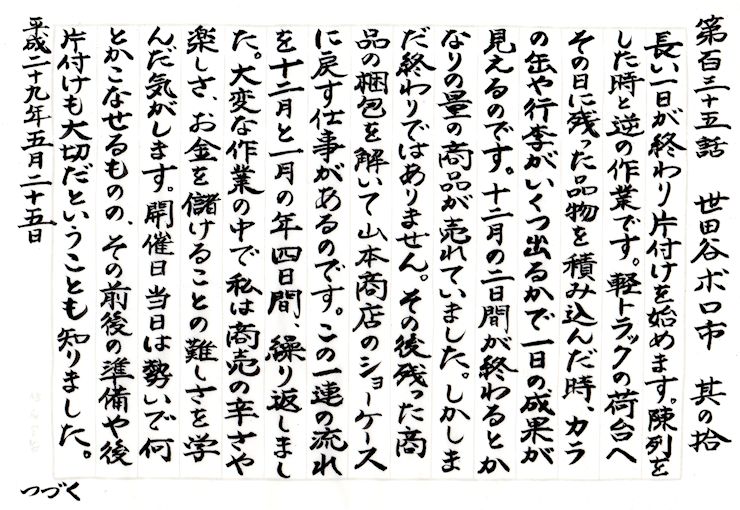 第百三十五話　世田谷ボロ市　其の拾
長い一日が終わり片付けを始めます。陳列を
した時と逆の作業です。軽トラックの荷台へ
その日に残った品物を積み込んだ時、カラ
の缶や行李がいくつ出るかで一日の成果が
見えるのです。十二月の二日間が終わるとか
なりの量の商品が売れていました。しかしま
だ終わりではありません。その後残った商
品の梱包を解いて山本商店のショーケース
に戻す仕事があるのです。この一連の流れ
を十二月と一月の年四日間、繰り返しまし
た。大変な作業の中で私は商売の辛さや
楽しさ、お金を儲けることの難しさを学
んだ気がします。開催日当日は勢いで何
とかこなせるものの、その前後の準備や後
片付けも大切だということも知りました。
平成二十九年五月二十五日
つづく